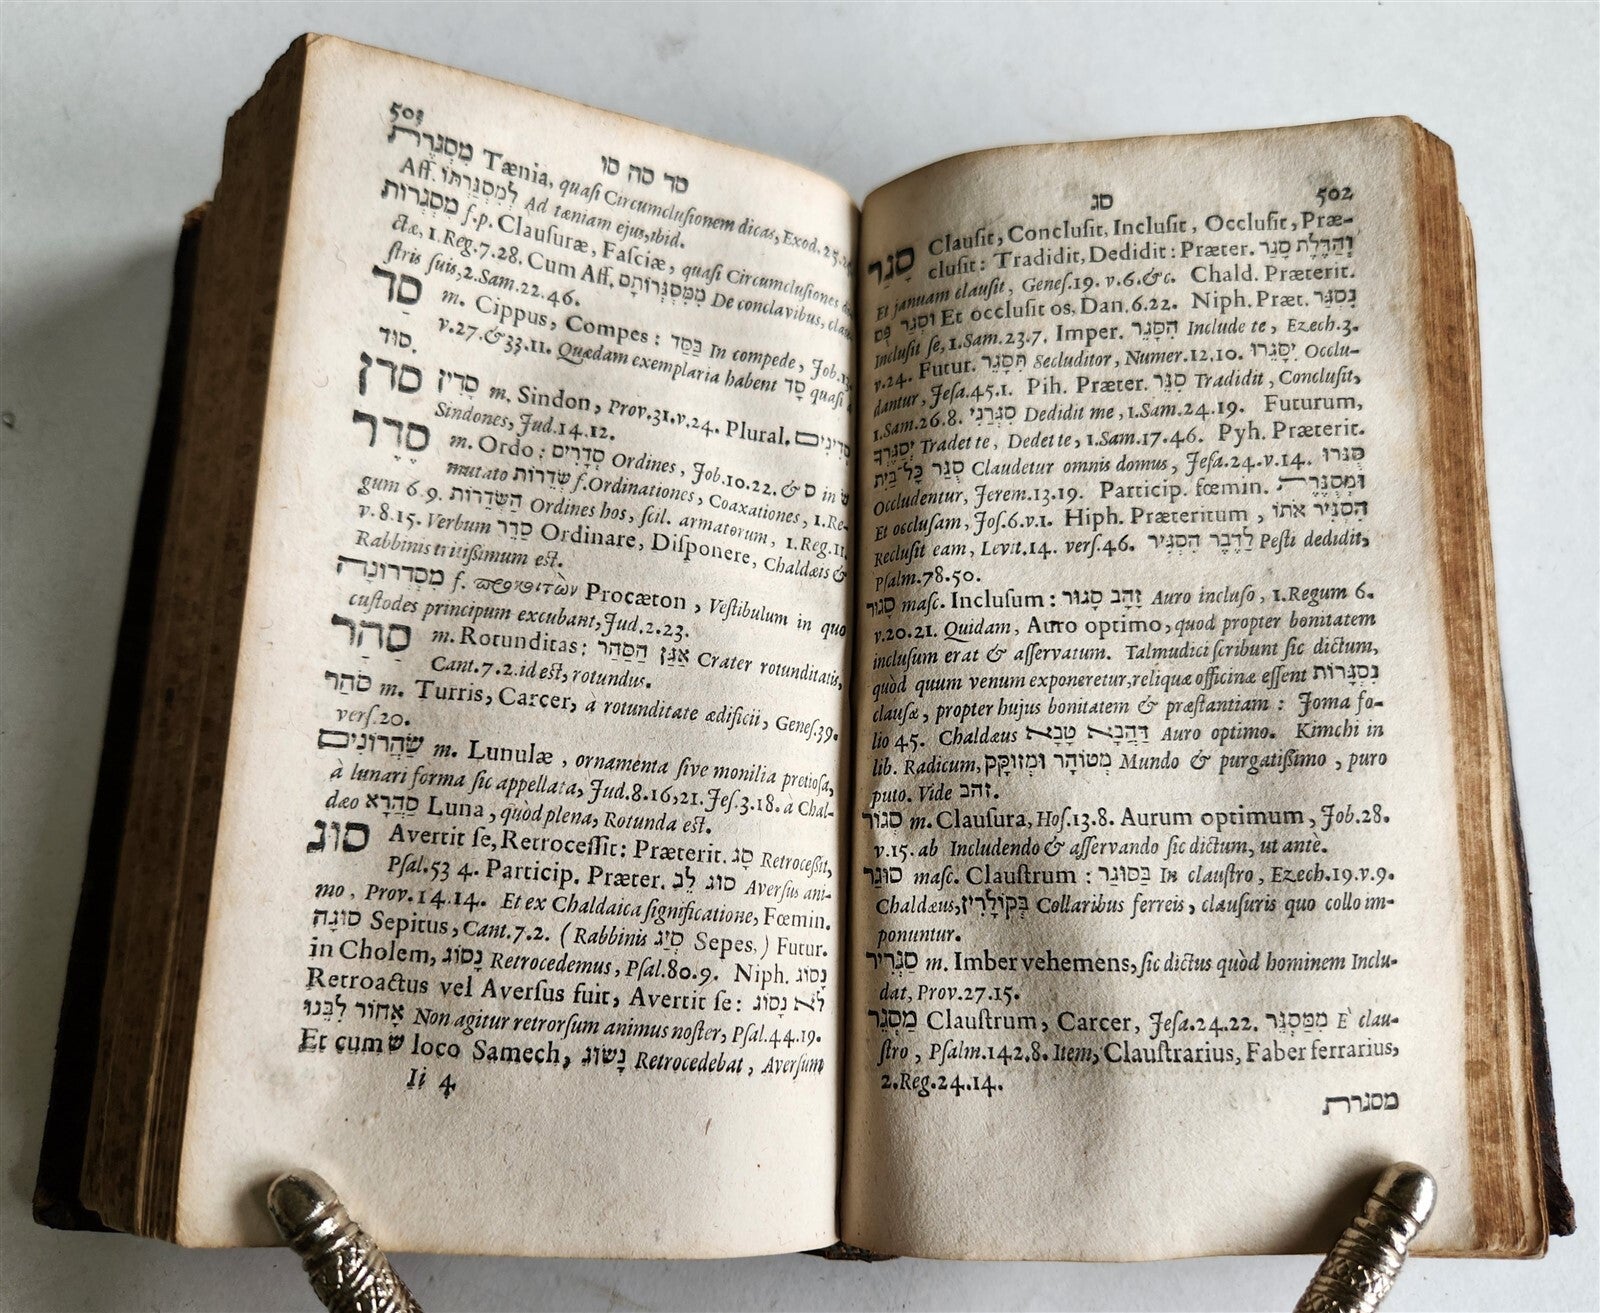 סג 502
סָגַר Clausit, Conclusit, Inclusit, Occlusit, Præ-
clusit: Tradidit, Dedidit: Præter. וְהַדֶּלֶת סָגַר
Et januam clausit, Genes.19. v.6.&c. Chald. Præterit.
וּסְגַר פֻּם Et occlusit os, Dan.6.22. Niph. Præt. נִסְגַּר
Inclusit se, 1.Sam.23.7. Imper. הִסָּגֵר Include te, Ezech.3.
v.24. Futur. תִּסָּגֵר Secluditor, Numer.12.10. יִסָּגֵרוּ Occlu-
dantur, Jesa.45.1. Pih. Præter. סִגַּר Tradidit, Conclusit,
1.Sam.26.8. סִגְּרַנִי Dedidit me, 1.Sam.24.19. Futurum,
יְסַגֶּרְךָ Tradet te, Dedet te, 1.Sam.17.46. Pyh. Præterit.
סֻגַּר כָּל־בַּיִת Claudetur omnis domus, Jesa.24.v.14. סֻגְּרוּ
Occludentur, Jerem.13.19. Particip. fœmin. וּמְסֻגֶּרֶת
Et occlusam, Jos.6.v.1. Hiph. Præteritum, הִסְגִּיר אֹתוֹ
Reclusit eam, Levit.14. vers.46. לַדֶּבֶר הִסְגִּיר Pesti dedidit,
Psalm.78.50.
סָגוּר masc. Inclusum: זָהָב סָגוּר Auro incluso, 1.Regum 6.
v.20.21. Quidam, Auro optimo, quod propter bonitatem
inclusum erat & asservatum. Talmudici scribunt sic dictum,
quòd quum venum exponeretur, reliquæ officinæ essent נִסְגָּרוֹת
clausæ, propter hujus bonitatem & præstantiam: Joma fo-
lio 45. Chaldæus דַּהֲבָא טָבָא Auro optimo. Kimchi in
lib. Radicum, מְטוֹהָר וּמְזוּקָּק Mundo & purgatissimo, puro
puto. Vide זהב.
סְגוֹר m. Clausura, Hos.13.8. Aurum optimum, Job.28.
v.15. ab Includendo & asservando sic dictum, ut antè.
סוּגַר masc. Claustrum: בַּסּוּגַר In claustro, Ezech.19.v.9.
Chaldæus, בְּקוֹלָרִין Collaribus ferreis, clausuris quo collo im-
ponuntur.
סַגְרִיר m. Imber vehemens, sic dictus quòd hominem Inclu-
dat, Prov.27.15.
מַסְגֵּר Claustrum, Carcer, Jesa.24.22. מִמַּסְגֵּר E clau-
stro, Psalm.142.8. Item, Claustrarius, Faber ferrarius,
2.Reg.24.14.
מסגרת
503 סד סה סו
מִסְגֶּרֶת Tænia, quasi Circumclusionem dicas, Exod.25.
Aff. לְמִסְגַּרְתּוֹ Ad tæniam ejus, ibid.
מִסְגְּרוֹת f.p. Clausuræ, Fasciæ, quasi Circumclusiones
ctæ, 1.Reg.7.28. Cum Aff. מִמִּסְגְּרוֹתָם De conclavibus, clau-
stris suis, 2.Sam.22.46.
סַד m. Cippus, Compes: בַּסַּד In compede, Job.13.
v.27.&33.11. Quædam exemplaria habent סָד quasi à
סוד.
סדן סָדִין m. Sindon, Prov.31.v.24. Plural. סְדִינִים
Sindones, Jud.14.12.
סֵדֶר m. Ordo: סְדָרִים Ordines, Job.10.22. & ס in ש
mutato שְׂדֵרוֹת f. Ordinationes, Coaxationes, 1.Re-
gum 6.9. הַשְּׂדֵרוֹת Ordines hos, scil. armatorum, 1.Reg.11.
v.8.15. Verbum סִדֵּר Ordinare, Disponere, Chaldæis &
Rabbinis tritissimum est.
מִסְדְּרוֹנָה f. προκοιτὼν Procæton, Vestibulum in quo
custodes principum excubant, Jud.2.23.
סַהַר m. Rotunditas: אַגַּן הַסַּהַר Crater rotunditatis,
Cant.7.2. id est, rotundus.
סֹהַר m. Turris, Carcer, à rotunditate ædificii, Genes.39.
vers.20.
שַׂהֲרוֹנִים m. Lunulæ, ornamenta sive monilia pretiosa,
à lunari forma sic appellata, Jud.8.16,21. Jes.3.18. à Chal-
dæo סַהֲרָא Luna, quòd plena, Rotunda est.
סוּג Avertit se, Retrocessit: Præterit. סָג Retrocessit,
Psal.53 4. Particip. Præter. סוּג לֵב Aversus ani-
mo, Prov.14.14. Et ex Chaldaica significatione, Fœmin.
סוּגָה Sepitus, Cant.7.2. (Rabbinis סְיָג Sepes.) Futur.
in Cholem, נָסוֹג Retrocedemus, Psal.80.9. Niph. נָסוֹג
Retroactus vel Aversus fuit, Avertit se: לֹא נָסוֹג
אָחוֹר לִבֵּנוּ Non agitur retrorsum animus noster, Psal.44.19.
Et cum שׂ loco Samech, נָשׂוֹג Retrocedebat, Aversum
Ii 4